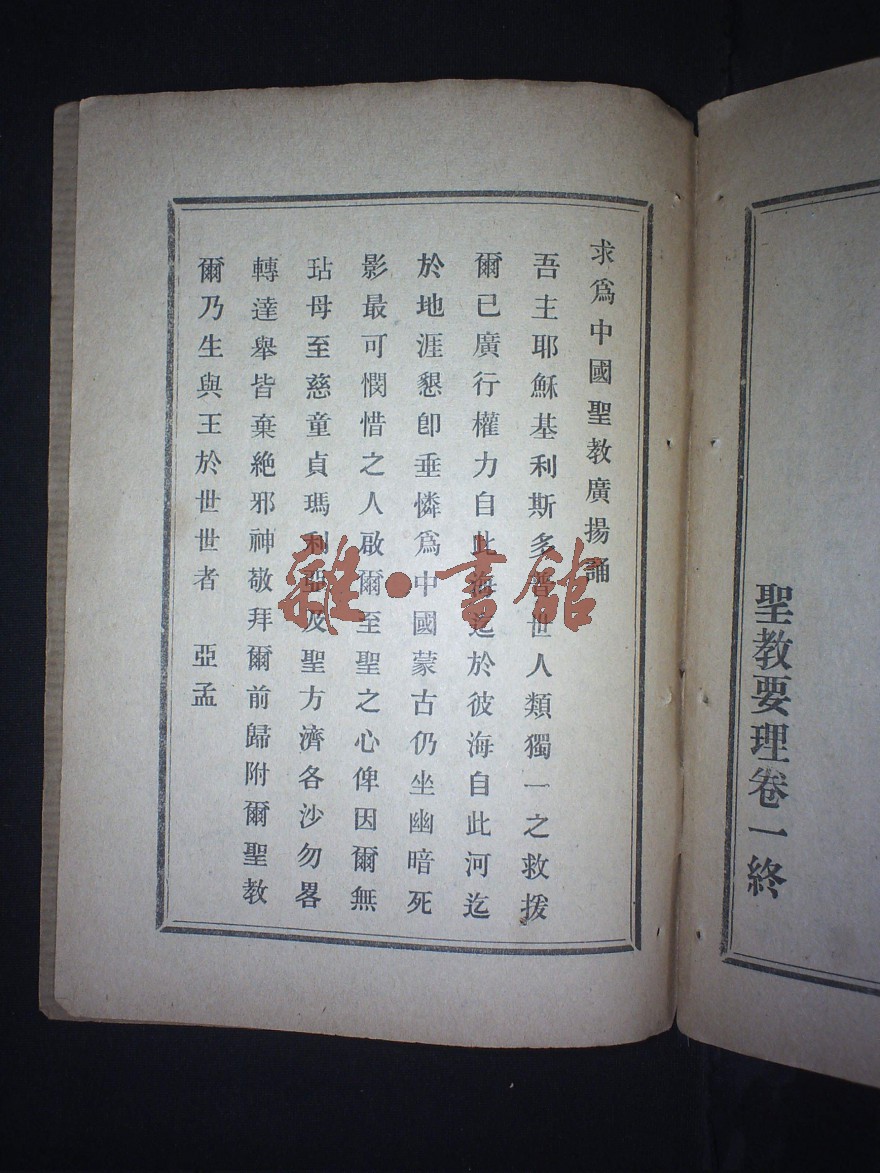 聖教要理卷一終
求爲中國聖教廣揚誦
吾主耶穌基利斯多普世人類獨一之救援
爾已廣行權力自此海迄於彼海自此河迄
於地涯懇卽垂憐爲中國蒙古仍坐幽暗死
影最可憫惜之人啟爾至聖之心俾因爾無
玷母至慈童貞瑪利亞及聖方濟各沙勿畧
轉達舉皆棄絶邪神敬拜爾前歸附爾聖教
爾乃生與王於世世者 亞孟
雜·書館